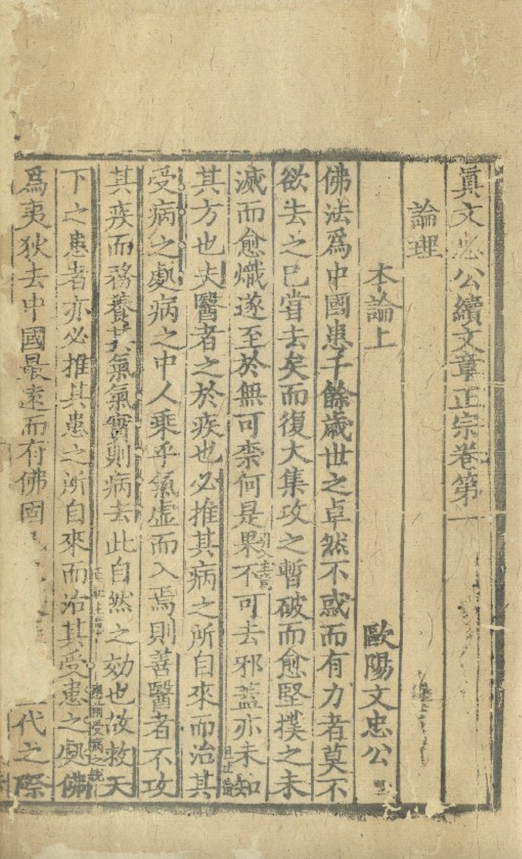 真文忠公續文章正宗卷第一
論理
本論上
歐陽文忠公
佛法爲中國患千餘歲世之卓然不惑而有力者莫不
欲去之巳甞去矣而復大集攻之暫破而愈堅撲之未
滅而愈熾遂至於無可柰何是果不可去邪蓋亦未知
其方也夫醫者之於疾也必推其病之所自來而治其
受病之處病之中人乗乎氣虚而入焉則善醫者不攻
其疾而務養其氣氣實則病去此自然之効也故救天
下之患者亦必推其患之所自來而治其受患之處佛
爲夷狄去中國最遠而有佛固
代之際